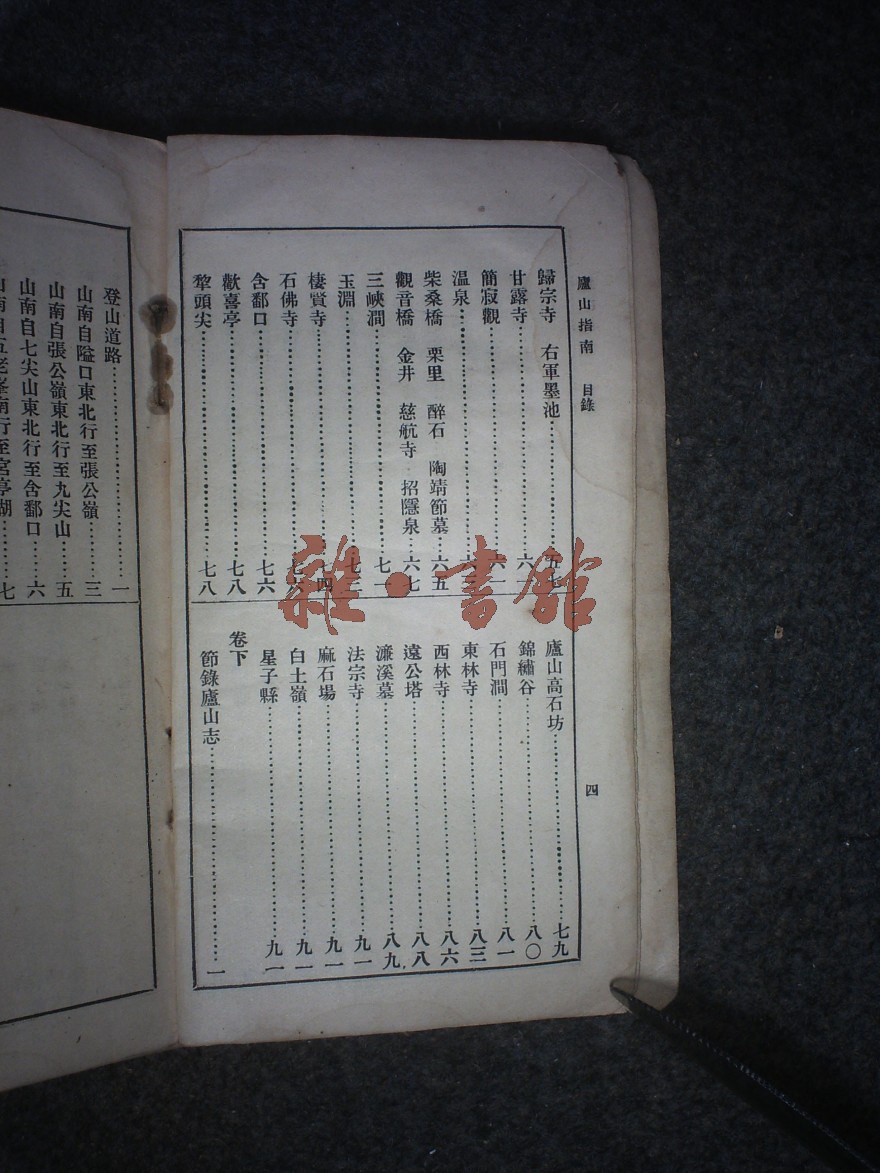 廬山指南　目錄
四
歸宗寺　右軍墨池……五七
甘露寺……六
簡寂觀……六一
温泉……六三
柴桑橋　栗里　醉石　陶靖節墓……六五
觀音橋　金井　慈航寺　招隱泉……六七
三峽澗……七一
玉淵……七二
棲賢寺……七四
石佛寺……七六
含鄱口……七六
歡喜亭……七八
犂頭尖……七八
廬山高石坊……七九
錦繡谷……八〇
石門澗……八一
東林寺……八三
西林寺……八六
遠公塔……八八
濂溪墓……八九
法宗寺……九一
麻石場……九一
白土嶺……九一
星子縣……九一
卷下
節錄廬山志……一
登山道路……一
山南自隘口東北行至張公嶺……三
山南自張公嶺東北行至九尖山……五
山南自七尖山東北行至含鄱口……六
山南自五老峯南行至宮亭湖……七
雜·書館